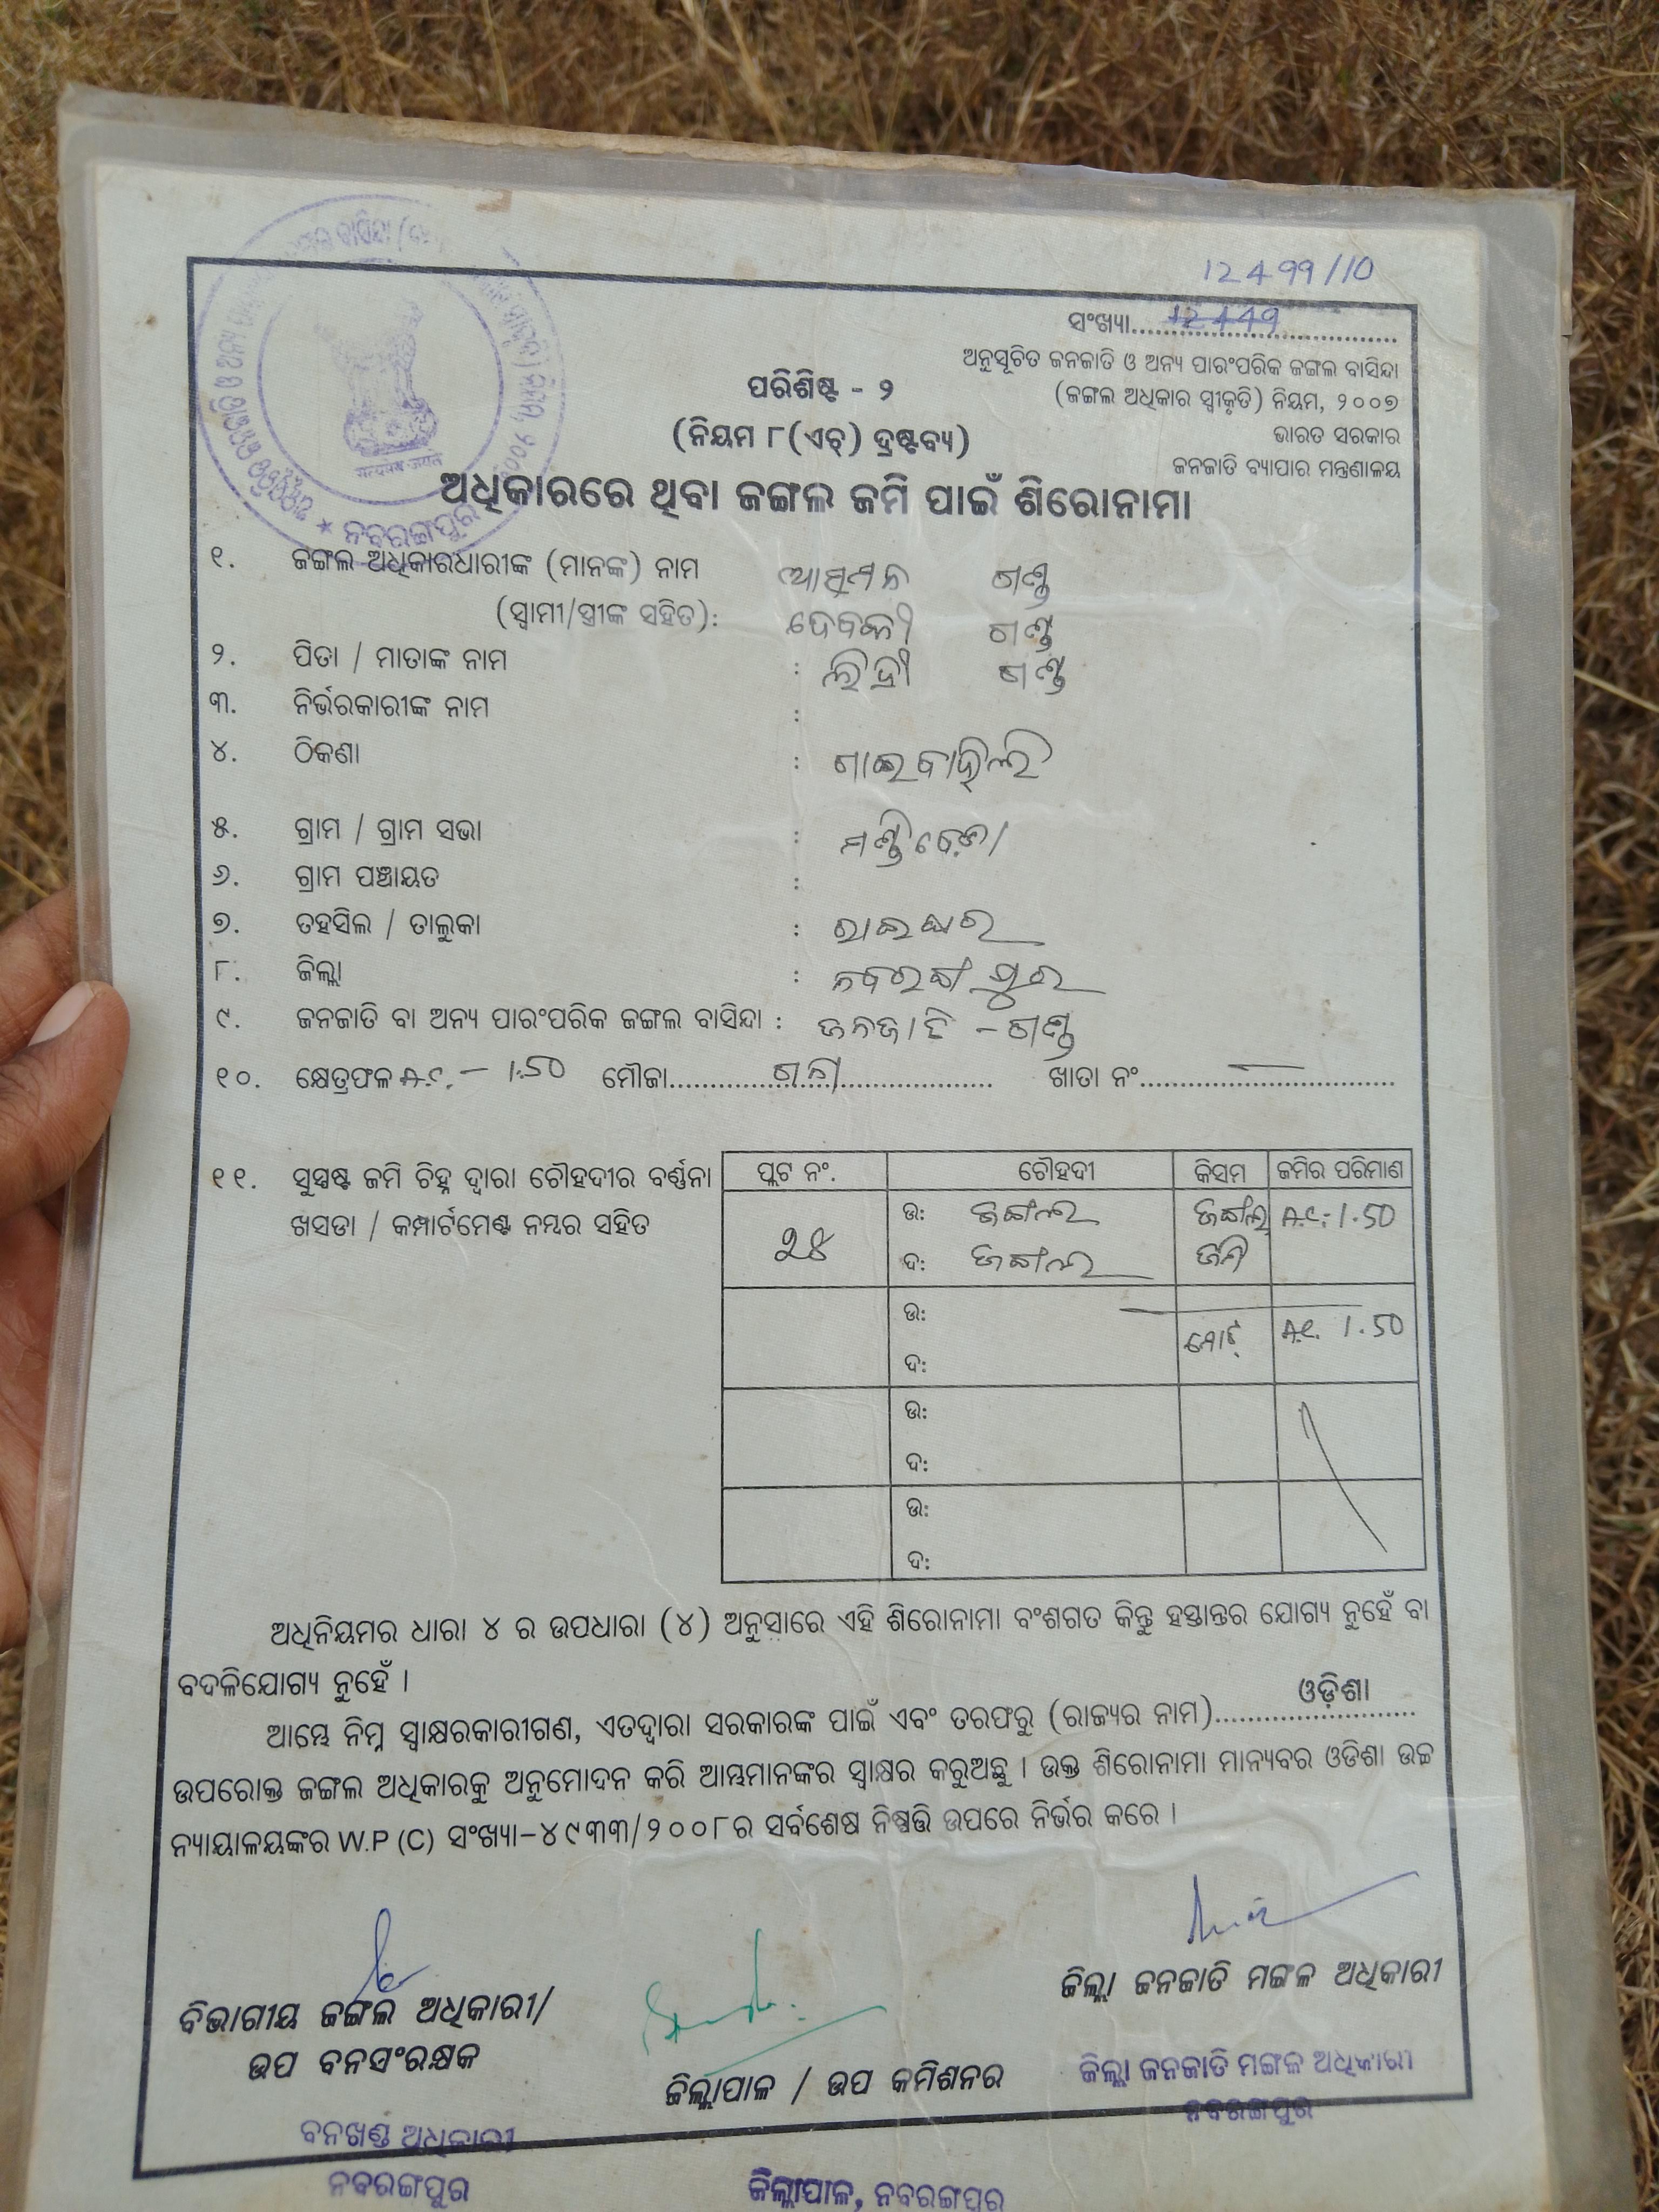 12499/10
ସଂଖ୍ୟା.... 12449
ଅନୁସୂଚିତ ଜନଜାତି ଓ ଅନ୍ୟ ପାରଂପରିକ ଜଙ୍ଗଲ ବାସିନ୍ଦା
(ଜଙ୍ଗଲ ଅଧିକାର ସ୍ୱୀକୃତି) ନିୟମ, ୨୦୦୭
ଭାରତ ସରକାର
ଜନଜାତି ବ୍ୟାପାର ମନ୍ତ୍ରଣାଳୟ
ପରିଶିଷ୍ଟ - ୨
(ନିୟମ ୮(ଏଚ୍) ଦ୍ରଷ୍ଟବ୍ୟ)
ଅଧିକାରରେ ଥିବା ଜଙ୍ଗଲ ଜମି ପାଇଁ ଶିରୋନାମା
ନବରଙ୍ଗପୁର
୧. ଜଙ୍ଗଲ ଅଧିକାରଧାରୀଙ୍କ (ମାନଙ୍କ) ନାମ ଗଣ୍ଡ
(ସ୍ୱାମୀ/ସ୍ତ୍ରୀଙ୍କ ସହିତ): ଦେବକୀ ଗଣ୍ଡ
୨. ପିତା / ମାତାଙ୍କ ନାମ : ଗଣ୍ଡ
୩. ନିର୍ଭରକାରୀଙ୍କ ନାମ :
୪. ଠିକଣା :
୫. ଗ୍ରାମ / ଗ୍ରାମ ସଭା :
୬. ଗ୍ରାମ ପଞ୍ଚାୟତ :
୭. ତହସିଲ / ତାଲୁକା : ରାଇଘର
୮. ଜିଲ୍ଲା : ନବରଙ୍ଗପୁର
୯. ଜନଜାତି ବା ଅନ୍ୟ ପାରଂପରିକ ଜଙ୍ଗଲ ବାସିନ୍ଦା : ଜନଜାତି - ଗଣ୍ଡ
୧୦. କ୍ଷେତ୍ରଫଳ A.C. - 1.50 ମୌଜା.... ଖାତା ନଂ.... —
୧୧. ସୁସ୍ପଷ୍ଟ ଜମି ଚିହ୍ନ ଦ୍ୱାରା ଚୌହଦୀର ବର୍ଣ୍ଣନା
ଖସଡା / କମ୍ପାର୍ଟମେଣ୍ଟ ନମ୍ବର ସହିତ
ପ୍ଲଟ ନଂ. ଚୌହଦୀ କିସମ ଜମିର ପରିମାଣ
୨୪ ଉ: ଜଙ୍ଗଲ ଜଙ୍ଗଲ A.C. 1.50
ଦ: ଜଙ୍ଗଲ ଜମି
ଉ: ମୋଟ୍ A.C. 1.50
ଦ:
ଉ:
ଦ:
ଉ:
ଦ:
ଅଧିନିୟମର ଧାରା ୪ ର ଉପଧାରା (୪) ଅନୁସାରେ ଏହି ଶିରୋନାମା ବଂଶଗତ କିନ୍ତୁ ହସ୍ତାନ୍ତର ଯୋଗ୍ୟ ନୁହେଁ ବା
ବଦଳିଯୋଗ୍ୟ ନୁହେଁ ।
ଆମ୍ଭେ ନିମ୍ନ ସ୍ୱାକ୍ଷରକାରୀଗଣ, ଏତଦ୍ୱାରା ସରକାରଙ୍କ ପାଇଁ ଏବଂ ତରଫରୁ (ରାଜ୍ୟର ନାମ).... ଓଡ଼ିଶା
ଉପରୋକ୍ତ ଜଙ୍ଗଲ ଅଧିକାରକୁ ଅନୁମୋଦନ କରି ଆମ୍ଭମାନଙ୍କର ସ୍ୱାକ୍ଷର କରୁଅଛୁ । ଉକ୍ତ ଶିରୋନାମା ମାନ୍ୟବର ଓଡିଶା ଉଚ୍ଚ
ନ୍ୟାୟାଳୟଙ୍କର W.P (C) ସଂଖ୍ୟା-୪୯୩୩/୨୦୦୮ର ସର୍ବଶେଷ ନିଷ୍ପତ୍ତି ଉପରେ ନିର୍ଭର କରେ ।
ବିଭାଗୀୟ ଜଙ୍ଗଲ ଅଧିକାରୀ/
ଉପ ବନସଂରକ୍ଷକ
ବନଖଣ୍ଡ ଅଧିକାରୀ
ନବରଙ୍ଗପୁର
ଜିଲ୍ଲାପାଳ / ଉପ କମିଶନର
ଜିଲ୍ଲାପାଳ, ନବରଙ୍ଗପୁର
ଜିଲ୍ଲା ଜନଜାତି ମଙ୍ଗଳ ଅଧିକାରୀ
ଜିଲ୍ଲା ଜନଜାତି ମଙ୍ଗଳ ଅଧିକାରୀ
ନବରଙ୍ଗପୁର